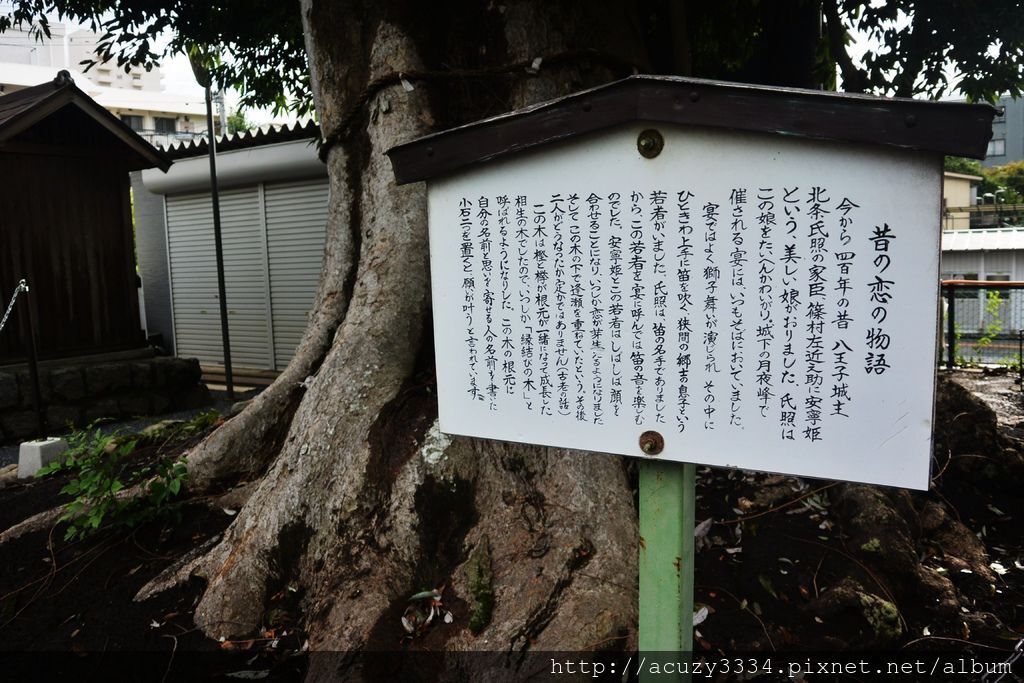 昔の恋の物語
今から四百年の昔 八王子城主
北条氏照の家臣、篠村左近之助に安寧姫
という、美しい娘がおりました。氏照は
この娘をたいへんかわいがり。城下の月夜峰で
催される宴には、いつもそばにおいていました。
宴ではよく獅子舞いが演じられ その中に
ひときわ上手に笛を吹く、狭間の郷士の息子という
若者がいました。氏照は、笛の名手でありました
から、この若者を宴に呼んでは笛の音を楽しむ
のでした。安寧姫とこの若者はしばしば顔を
合わせることになり、いつしか恋が芽生えるようになりました
そして この木の下で逢瀬を重ねていたという。その後
二人がどうなったか定かではありません(古老の話)
この木は樫と欅が根元が一緒になって成長した
相生の木でしたので、いつしか「縁結びの木」と
呼ばれるようになりした。この木の根元に
自分の名前と思いを寄せる人の名前を書いた
小石二つを置くと、願が叶うと言われています。
http://acuzy3334.pixnet.net/album